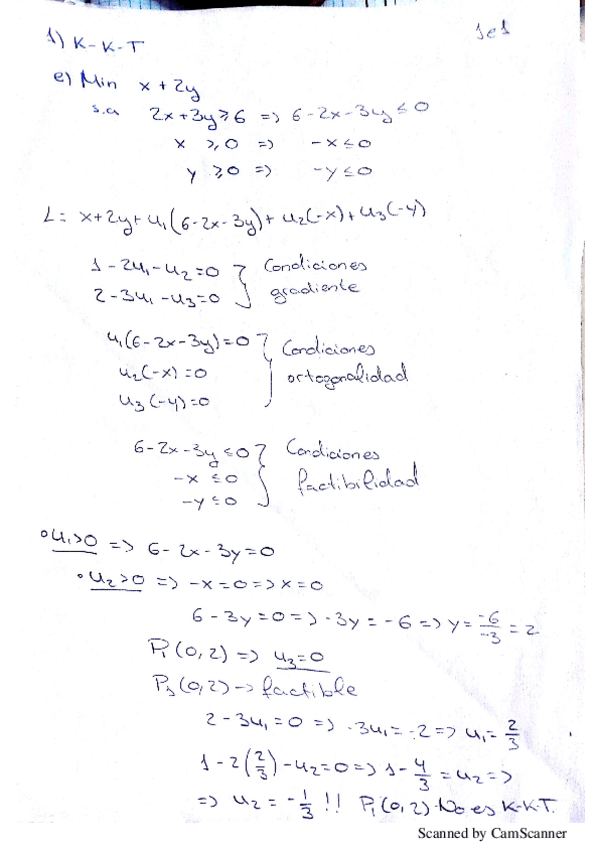 1e1
1) K-K-T
e) Min x + 2y
s.a 2x+3y≥6 => 6-2x-3y≤0
x ≥0 => -x≤0
y ≥0 => -y≤0
L= x+2y+u₁(6-2x-3y)+u₂(-x)+u₃(-y)
1-2u₁-u₂=0 } Condiciones
2-3u₁-u₃=0 gradiente
u₁(6-2x-3y)=0 } Condiciones
u₂(-x)=0 ortogonalidad
u₃(-y)=0
6-2x-3y≤0 } Condiciones
-x≤0 factibilidad
-y≤0
°u₁>0 => 6-2x-3y=0
•u₂>0 => -x=0=>x=0
6-3y=0=>-3y=-6=>y=-6/-3=2
P₁(0,2)=> u₃=0
P₁(0,2)->factible
2-3u₁=0 => -3u₁=-2=> u₁=2/3
1-2(2/3)-u₂=0=>1-4/3=u₂=>
=> u₂=-1/3 !! P₁(0,2) No es K-K-T.
Scanned by CamScanner